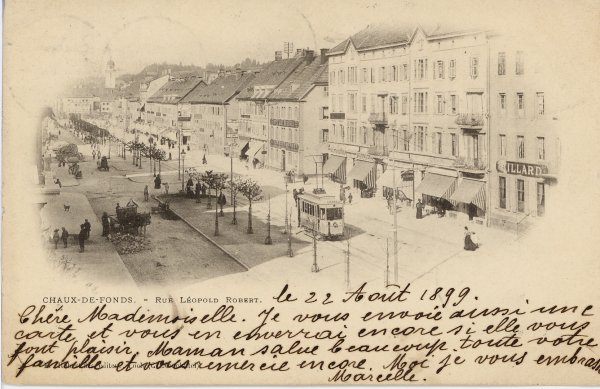 BILLARD
CHAUX-DE-FONDS. - RUE LÉOPOLD ROBERT.
le 22 Août 1899.
Chère Mademoiselle. Je vous envoie aussi une
carte, et vous en enverrai encore si elle vous
font plaisir, Maman salue beaucoup toute votre
famille et vous remercie encore. Moi je vous embrasse
Marcelle.